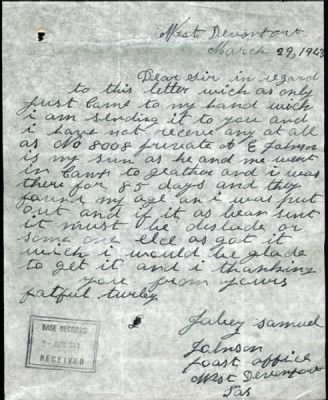 West Devonport
March 29, 1923
Dear sir in regard
to this letter wich as only
just came to my hand wich
i am sending it to you and
i have not receive any at all
as No 8008 private A E Johnson
is my sun as he and me went
in Camp to geather and i was
there for 85 days and they
founf my age an i was put
out and if it as bean sent
it must be
some one else as got it
wich i would be glade
to get it and i thanking
you from yours
fatful turley
Samuel
Johnson
poast office
West Devonport
Tas
BASE RECORDS
RECEIVED